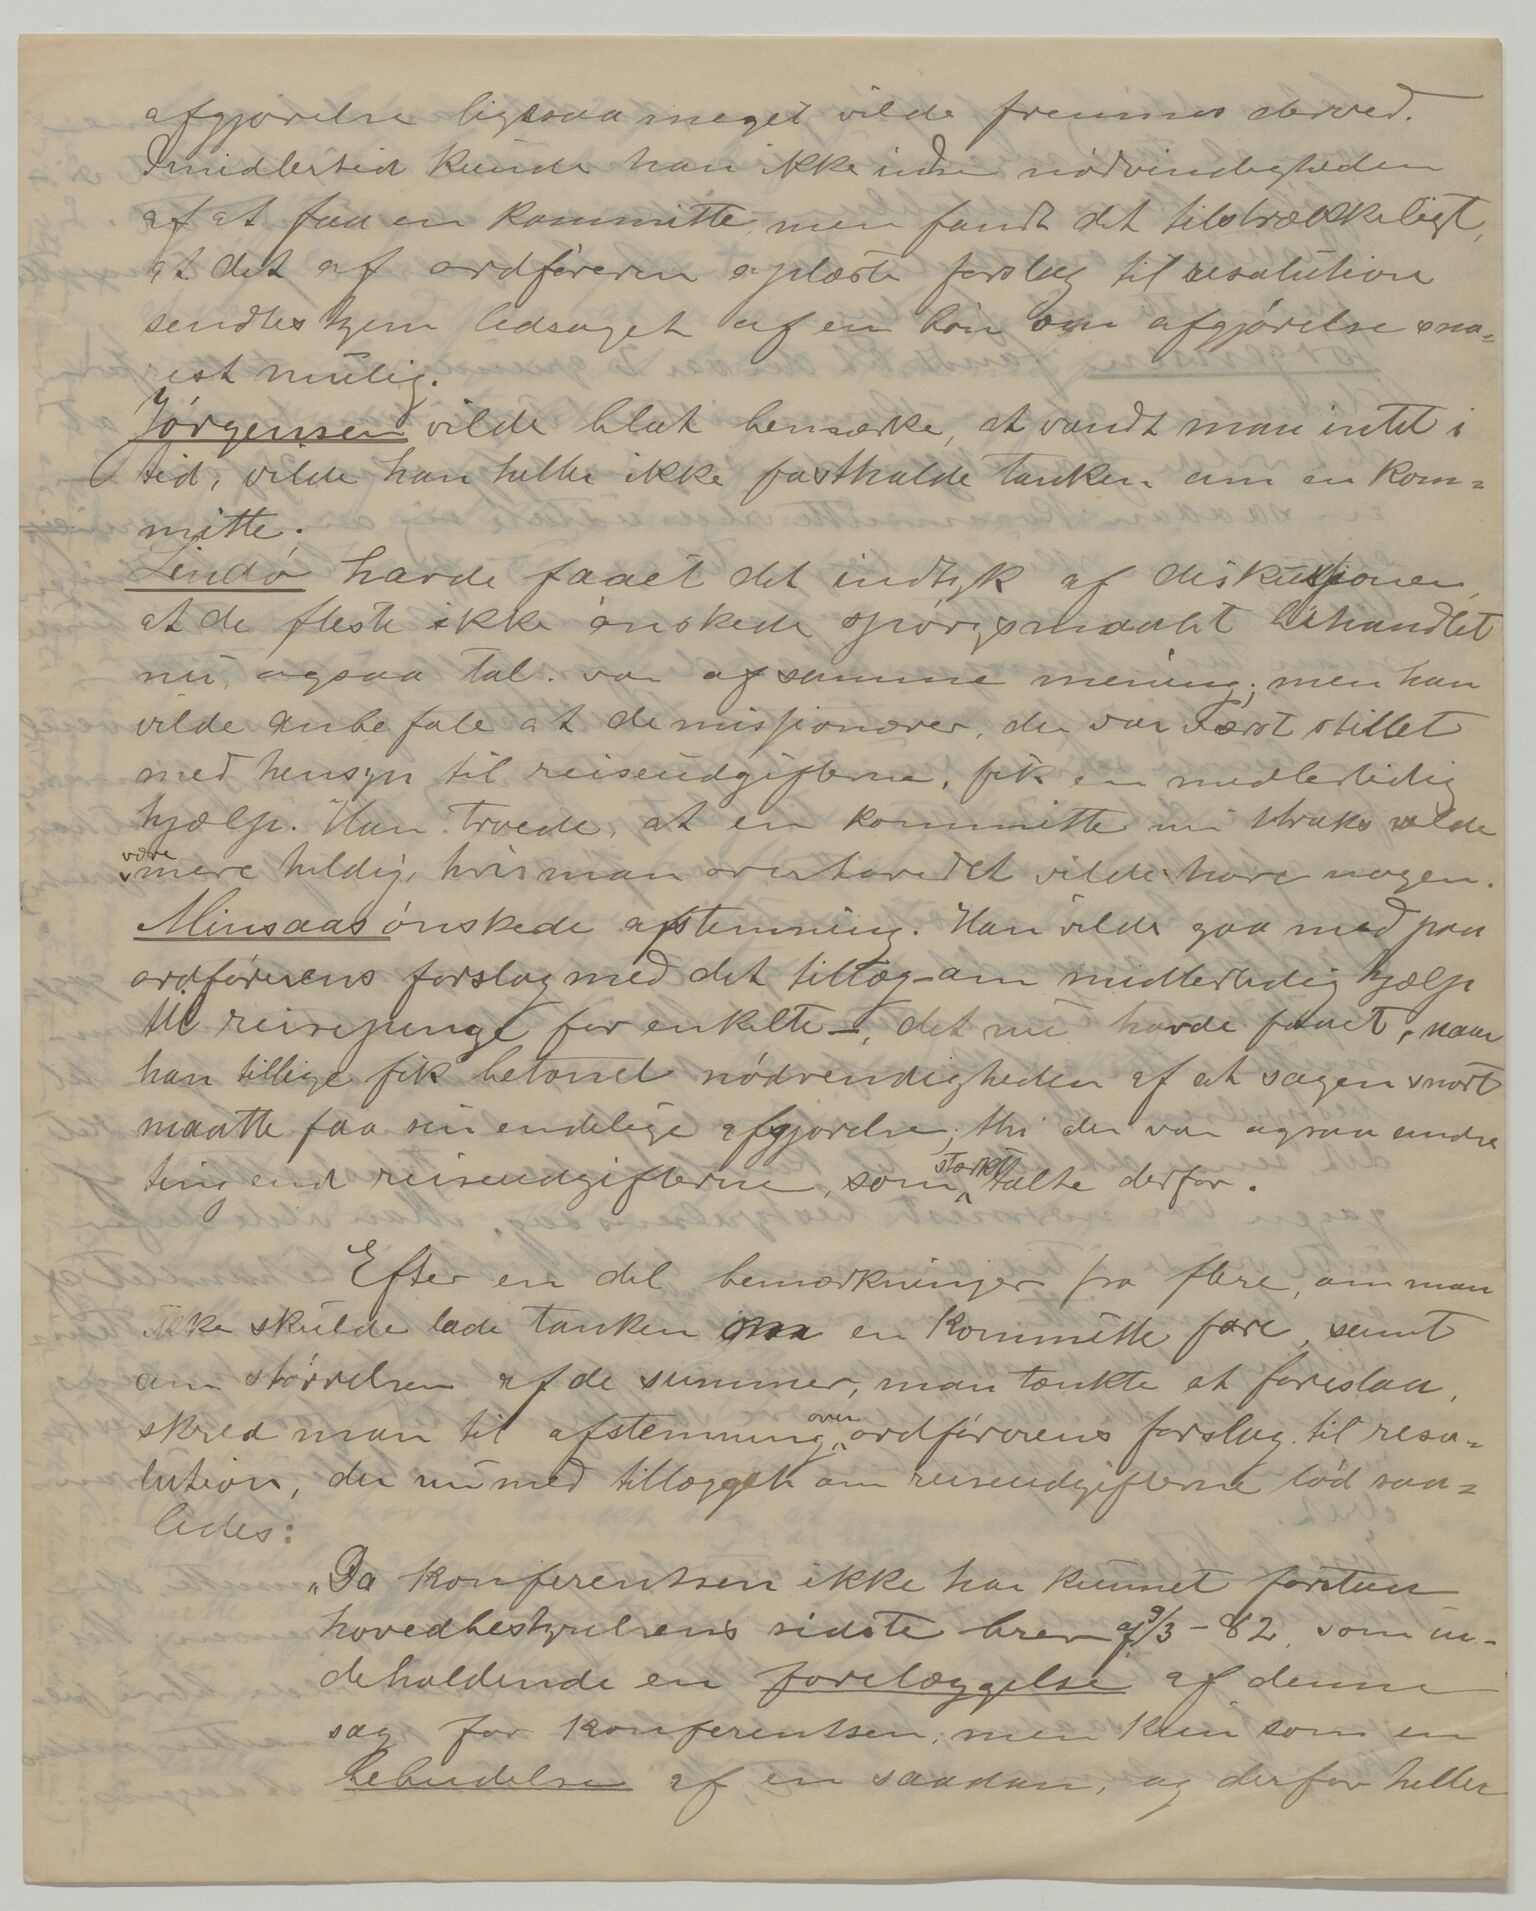 afgjörelse ligesaa meget vilde fremmes derved.
Imidlertid kunde han ikke indse nödvendigheden
af at faa en kommitte men fandt det tilstrækkeligt,
at det af ordföreren oplæste forslag til resolution
sendtes hjem ledsaget af en bön om afgjörelse sna=
rest mulig.
Jörgensen vilde blot bemærke, at vandt man intet i
tid, vilde han heller ikke fastholde tanken om en kom=
mitte.
Lindö havde faaet det indtryk af diskussionen,
at de fleste ikke önskede spörgsmaalet behandlet
nu, ogsaa tal. var af samme mening; men han
vilde anbefale at de missionærer, der var værst stillet
med hensyn til reiseudgifterne, fik en midlertidig
hjælp. Han troede, at en kommitte nu straks vilde
være mere heldig, hvis man overhovedet vilde have nogen.
Minsaas önskede afstemning. Han vilde gaa med paa
ordförerens forslag med det tillæg om midlertidig hjælp
til reisepenge for enkelte –, det nu havde faaet, naar
han tillige fik betonet nödvendigheden af at sagen snart
maatte faa sin endelige afgjörelse; thi der var ogsaa andre
ting end reiseudgifterne, som stærkt talte derfor.
Efter en del bemærkninger fra flere, om man
ikke skulde lade tanken om en kommitte fare, samt
om störrelsen af de summer, man tænkte at foreslaa,
skred man til afstemning over ordförerens forslag til reso=
lution, der nu med tillægget om reiseudgifterne löd saa=
ledes:
„Da konferentsen ikke har kunnet forstaa
hovedbestyrelsens sidste brev af 9/3 – 82, som in-
deholdende en forelæggelse af denne
sag for konferentsen, men kun som en
bebudelse af en saadan, og derfor heller